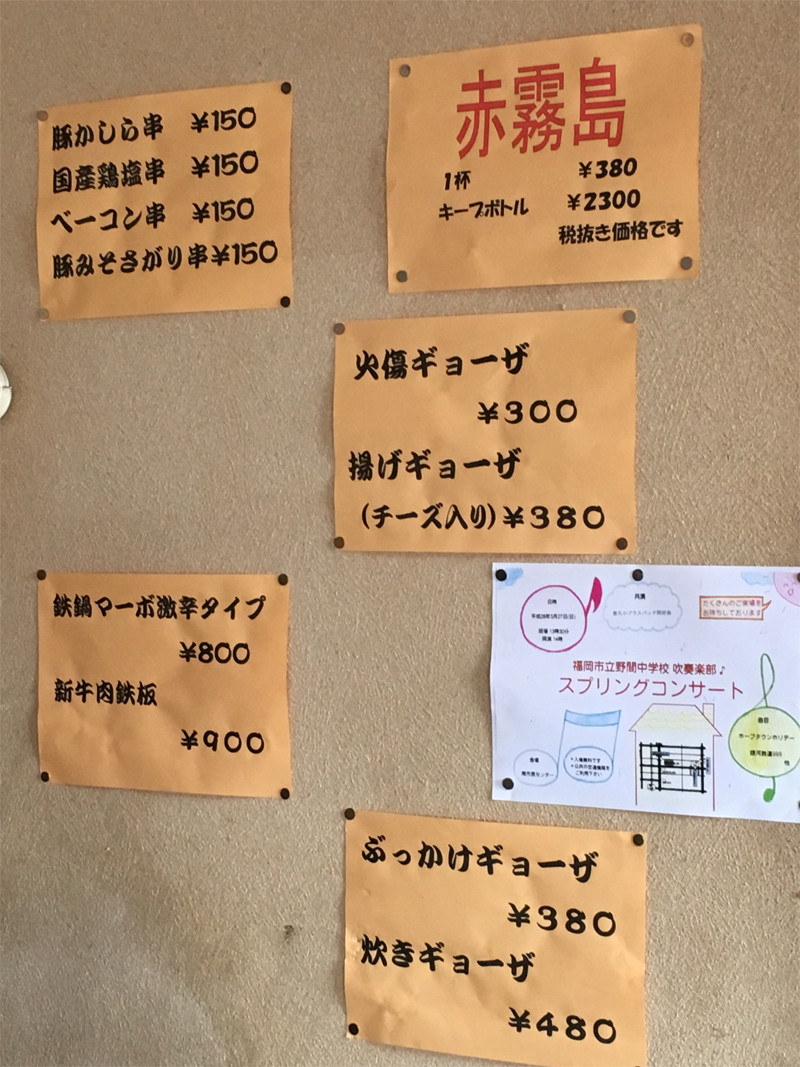 豚かしら串 ¥150
国産鶏塩串 ¥150
ベーコン串 ¥150
豚みそさがり串¥150
赤霧島
1杯 ¥380
キープボトル ¥2300
税抜き価格です
火傷ギョーザ
¥300
揚げギョーザ
(チーズ入り)¥380
鉄鍋マーボ激辛タイプ
¥800
新牛肉鉄板
¥900
日時
平成28年3月27日(日)
開場 13時30分
開演 14時
共演
たくさんのご来場を
お待ちしております
福岡市立野間中学校 吹奏楽部♪
スプリングコンサート
曲目
ホープタウンホリデー
銀河鉄道999
他
会場
南市民センター
*入場無料です
*公共の交通機関を
ご利用下さい
ぶっかけギョーザ
¥380
炊きギョーザ
¥480